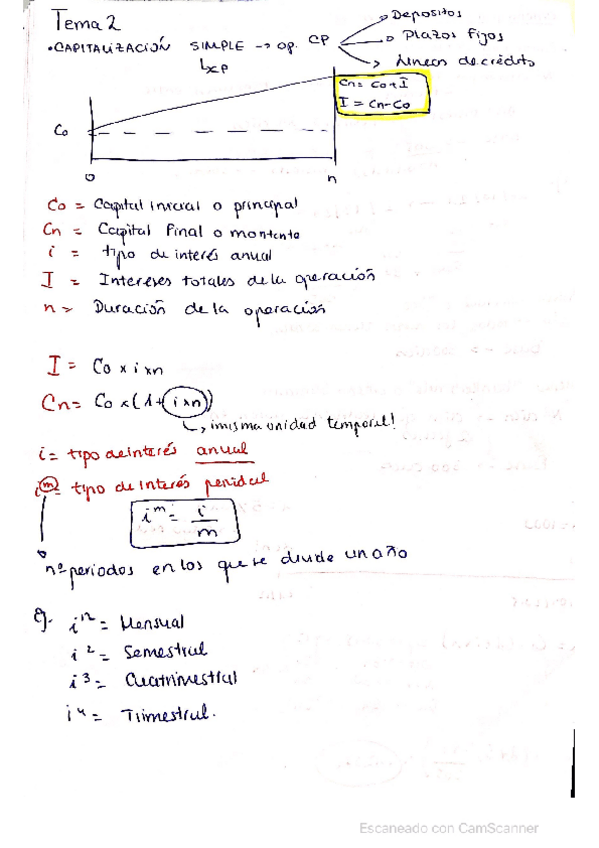 Tema 2
• CAPITALIZACIÓN SIMPLE → op. CP
→ Depositos
→ Plazos fijos
→ lineas de crédito
↳ CP
Cn = Co + I
I = Cn - Co
Co
0 n
Co = Capital inicial o principal
Cn = Capital final o montante
i = tipo de interés anual
I = Intereses totales de la operación
n = Duración de la operación
I = Co x i x n
Cn = Co x (1 + i x n)
↳ ¡misma unidad temporal!
i = tipo de interés anual
i^m = tipo de interés periodal
i^m = i/m
nº periodos en los que se divide un año
Ej. i^12 = Mensual
i^2 = Semestral
i^3 = Cuatrimestral
i^4 = Trimestral.
Escaneado con CamScanner